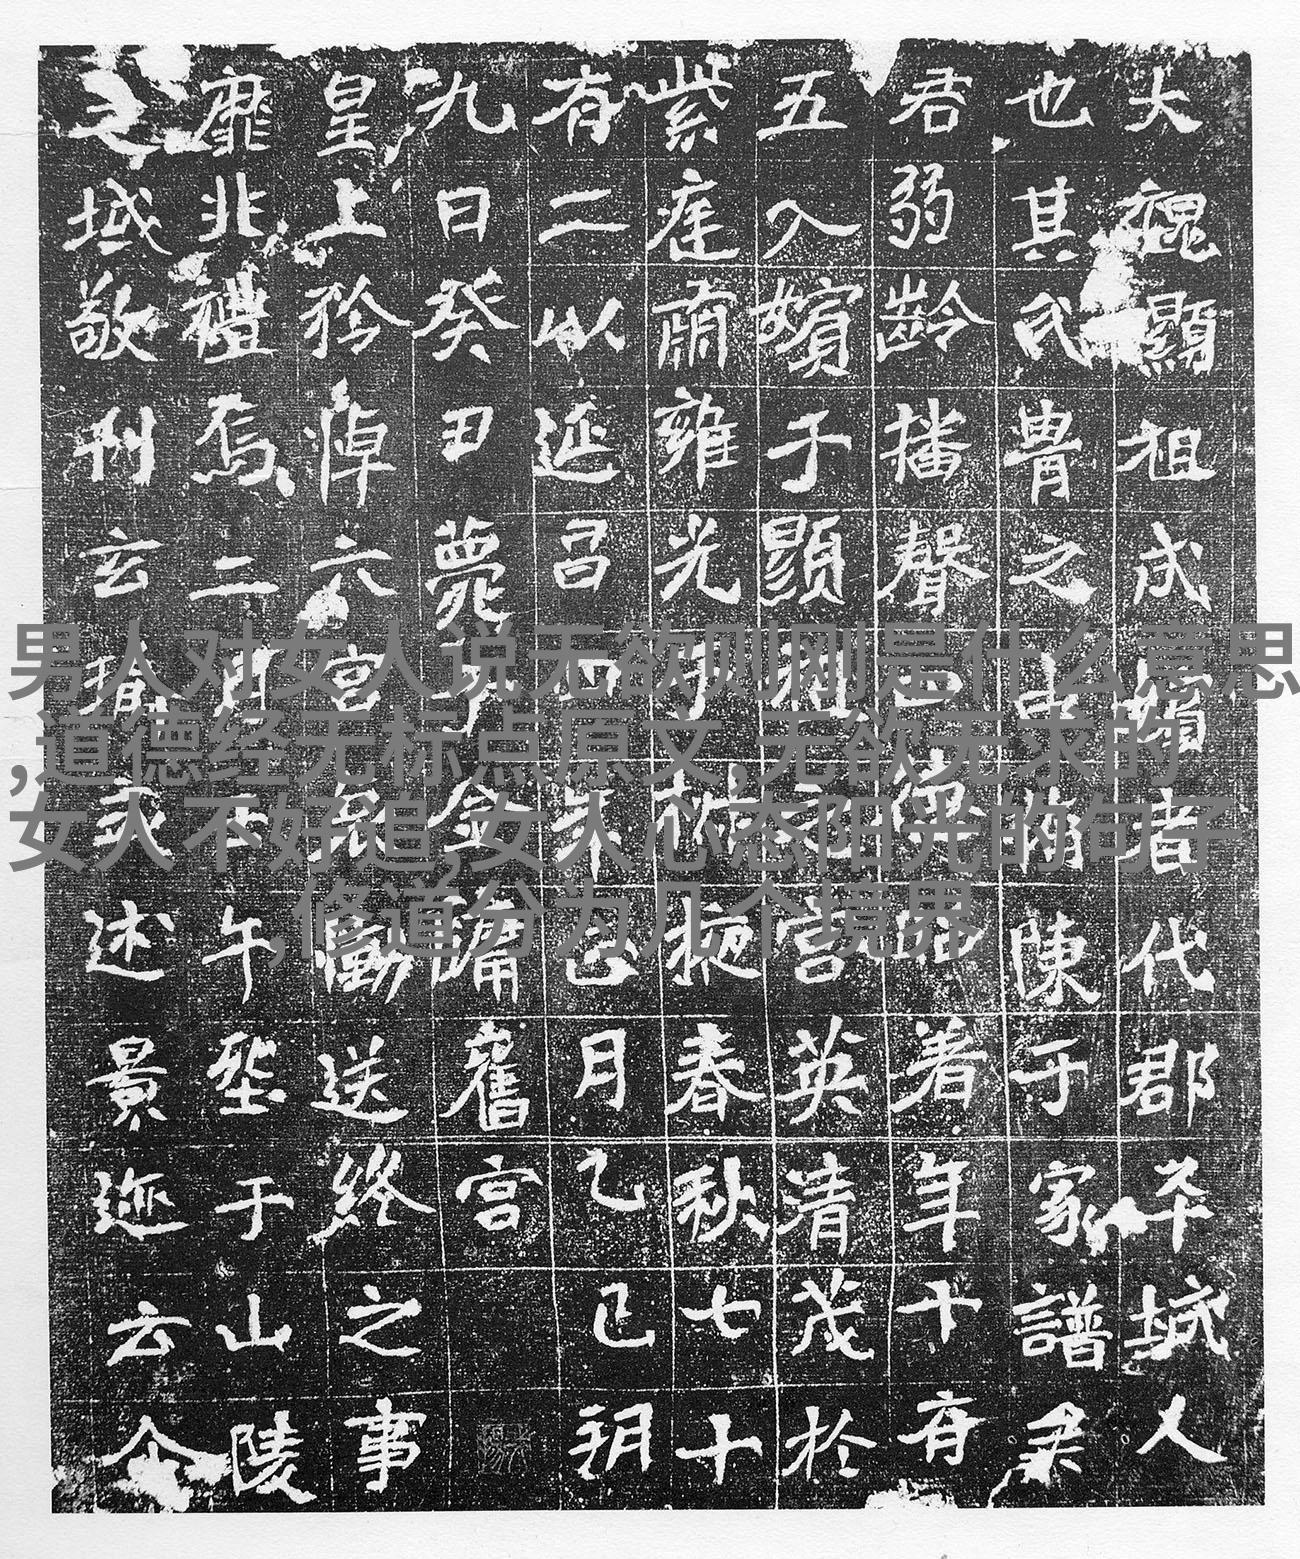 大魏顯祖成嬪者代郡平城人
也其氏胄之昌胤陳于家譜柔
君弱齡播聲著年十有
五入嬪于顯祖之宮英清茂於
紫庭肅雍光于椒掖春秋七十
有二以延昌四年正月乙巳朔
九日癸丑薨于金墉舊宮
皇上矜悼六宮哀慟送終之事
靡北禮焉二月壬午塟于山陵
之域敬刊玄述景迹云
男人对女人说无欲则刚是什么意思
,道德经无标点原文,无欲无求的
女人不好追,女人心态阳光的句子
,修道分为几个境界